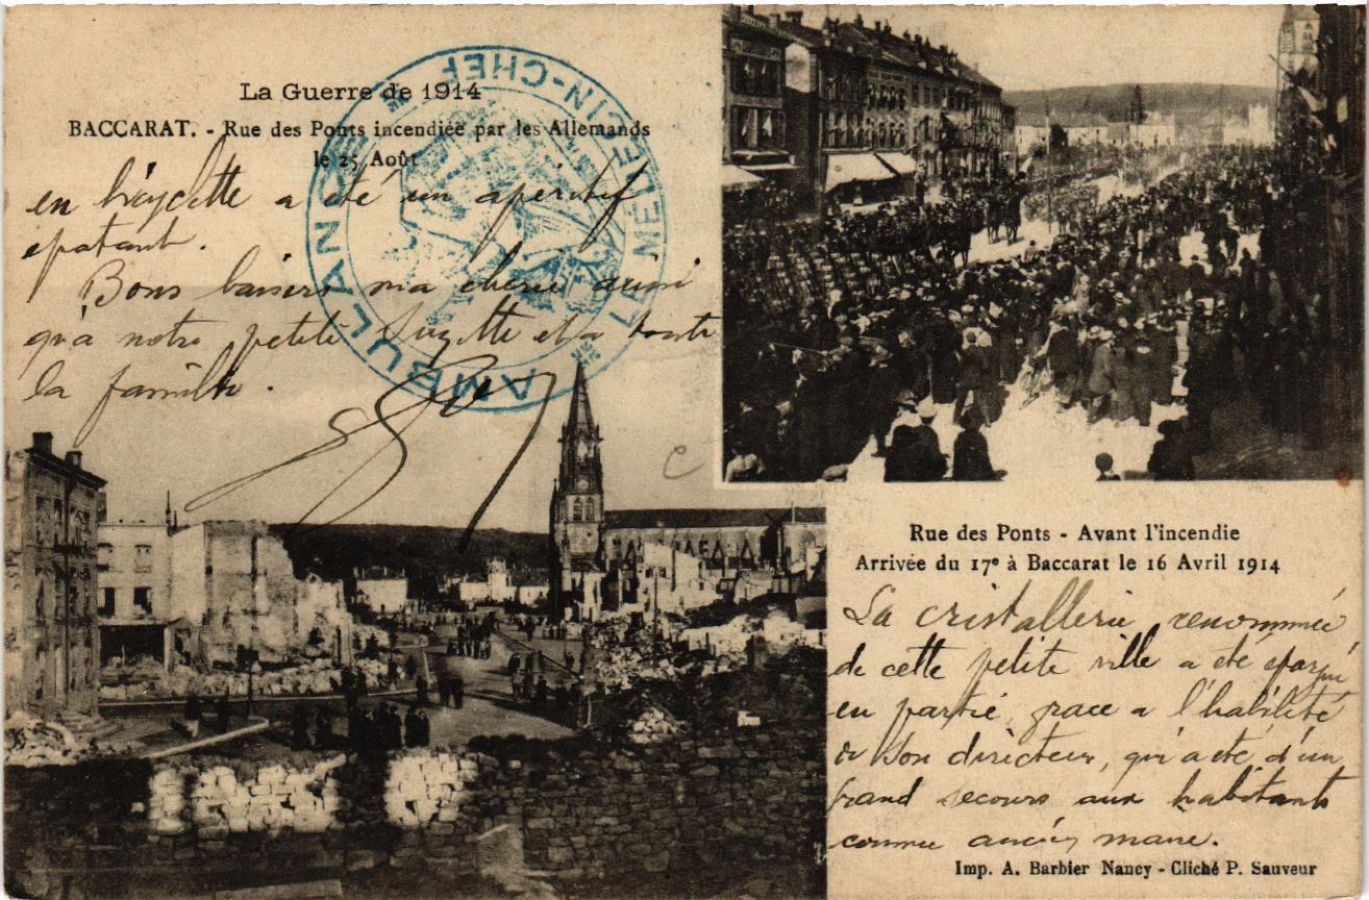 La Guerre de 1914
BACCARAT. - Rue des Ponts incendiée par les Allemands
le 25 Août
en bicyclette a été un apéritif
épatant.
Bons baisers ma chérie ainsi
qu'à notre petite Suzette et a toute
la famille.
AMBULANCE
LE MÉDECIN-CHEF
Rue des Ponts - Avant l'incendie
Arrivée du 17e à Baccarat le 16 Avril 1914
La cristallerie renommée
de cette petite ville a été épargné
en partie, grace a l'habilité
de son directeur, qui a été d'un
grand secours aux habitants
comme ancien maire.
Imp. A. Barbier Nancy - Cliché P. Sauveur